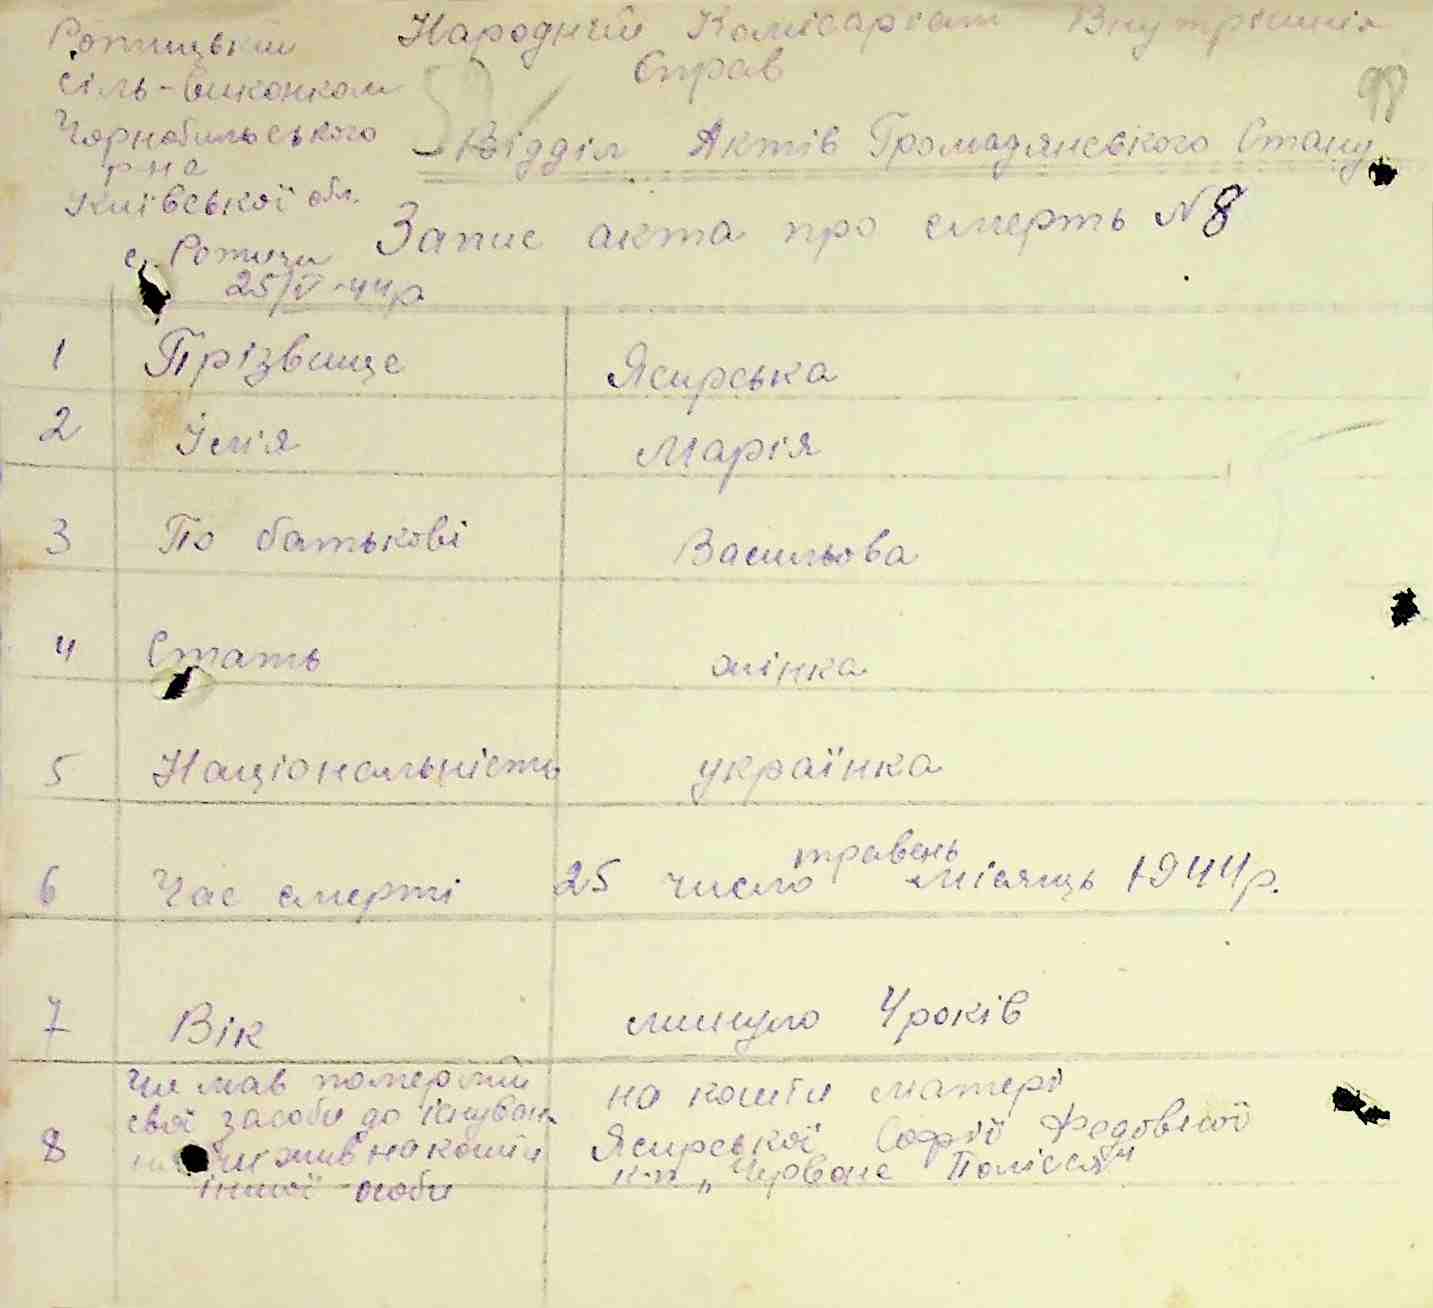 Народний Комісаріат Внутрішніх
Справ
98
Відділ Актів Громадянського Стану
Ротицький
сіль-виконком
Чорнобильського
р-на
Київської обл.
с. Ротичи
25/V-44р
Запис акта про смерть №8
1 Прізвище Ясирська
2 Імія Марія
3 По батькові Васильова
4 Стать жінка
5 Національність українка
травень
6 Час смерті 25 число місяць 1944р.
7 Вік минуло 4 років
8 Чи мав померший
свої засоби до існуван
чи жив на кошти
іншої особи
на кошти матері
Ясирської Софії Федовисої
к-п „Червоне Полісся"